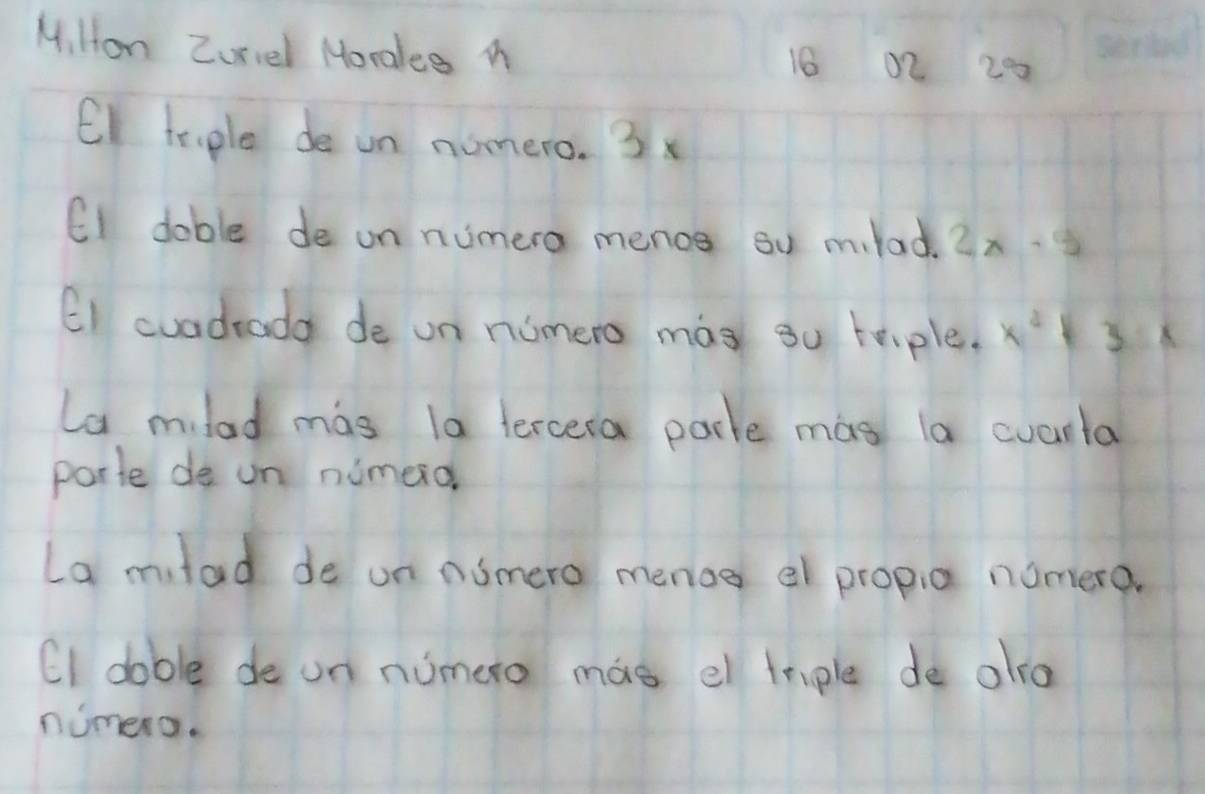 Milton Zuriel Morales 16 02 28
El triple de un número. 3x
El doble de un número menos su mitad. 2x -
El cuadrado de un número más su triple. x² + 3 x
La mitad más la tercera parte más la cuarta
parte de un número.
La mitad de un número menos el propio número.
El doble de un número más el triple de otro
número.